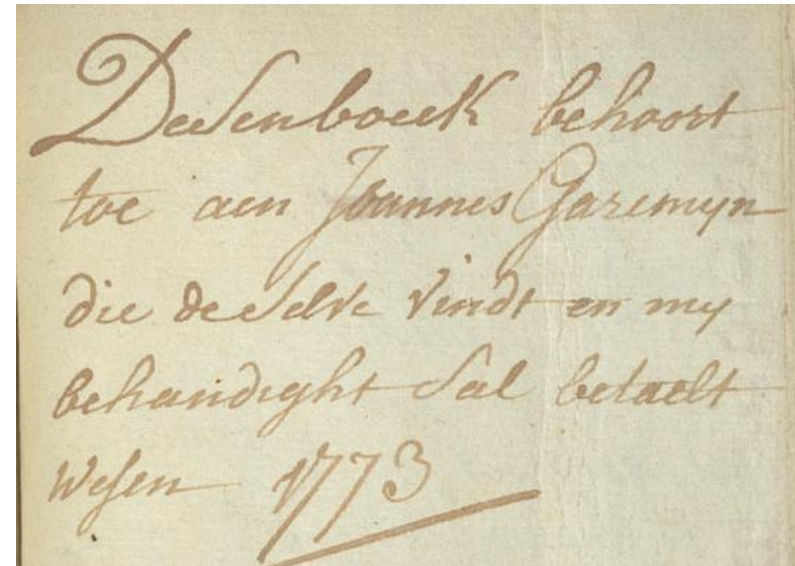 Deesenboeck behoort
toe aen Joannes Garemyn
die de selve vindt en my
behandight sal betaelt
wesen 1773